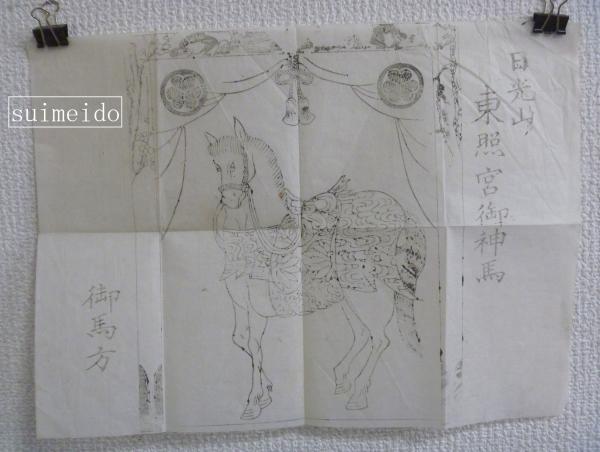 日光山
東照宮御神馬
御馬方
suimeido